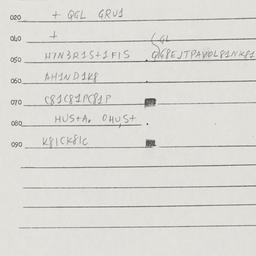 020 + QGL GRU1
040 +
GL
050 H7N3R1S+1FIS QG8EJTPAVOL81NK81
060 AH1ND1K8
070 C81C81PC81P
080 HUS+A. OHUS+
090 K81CK81C